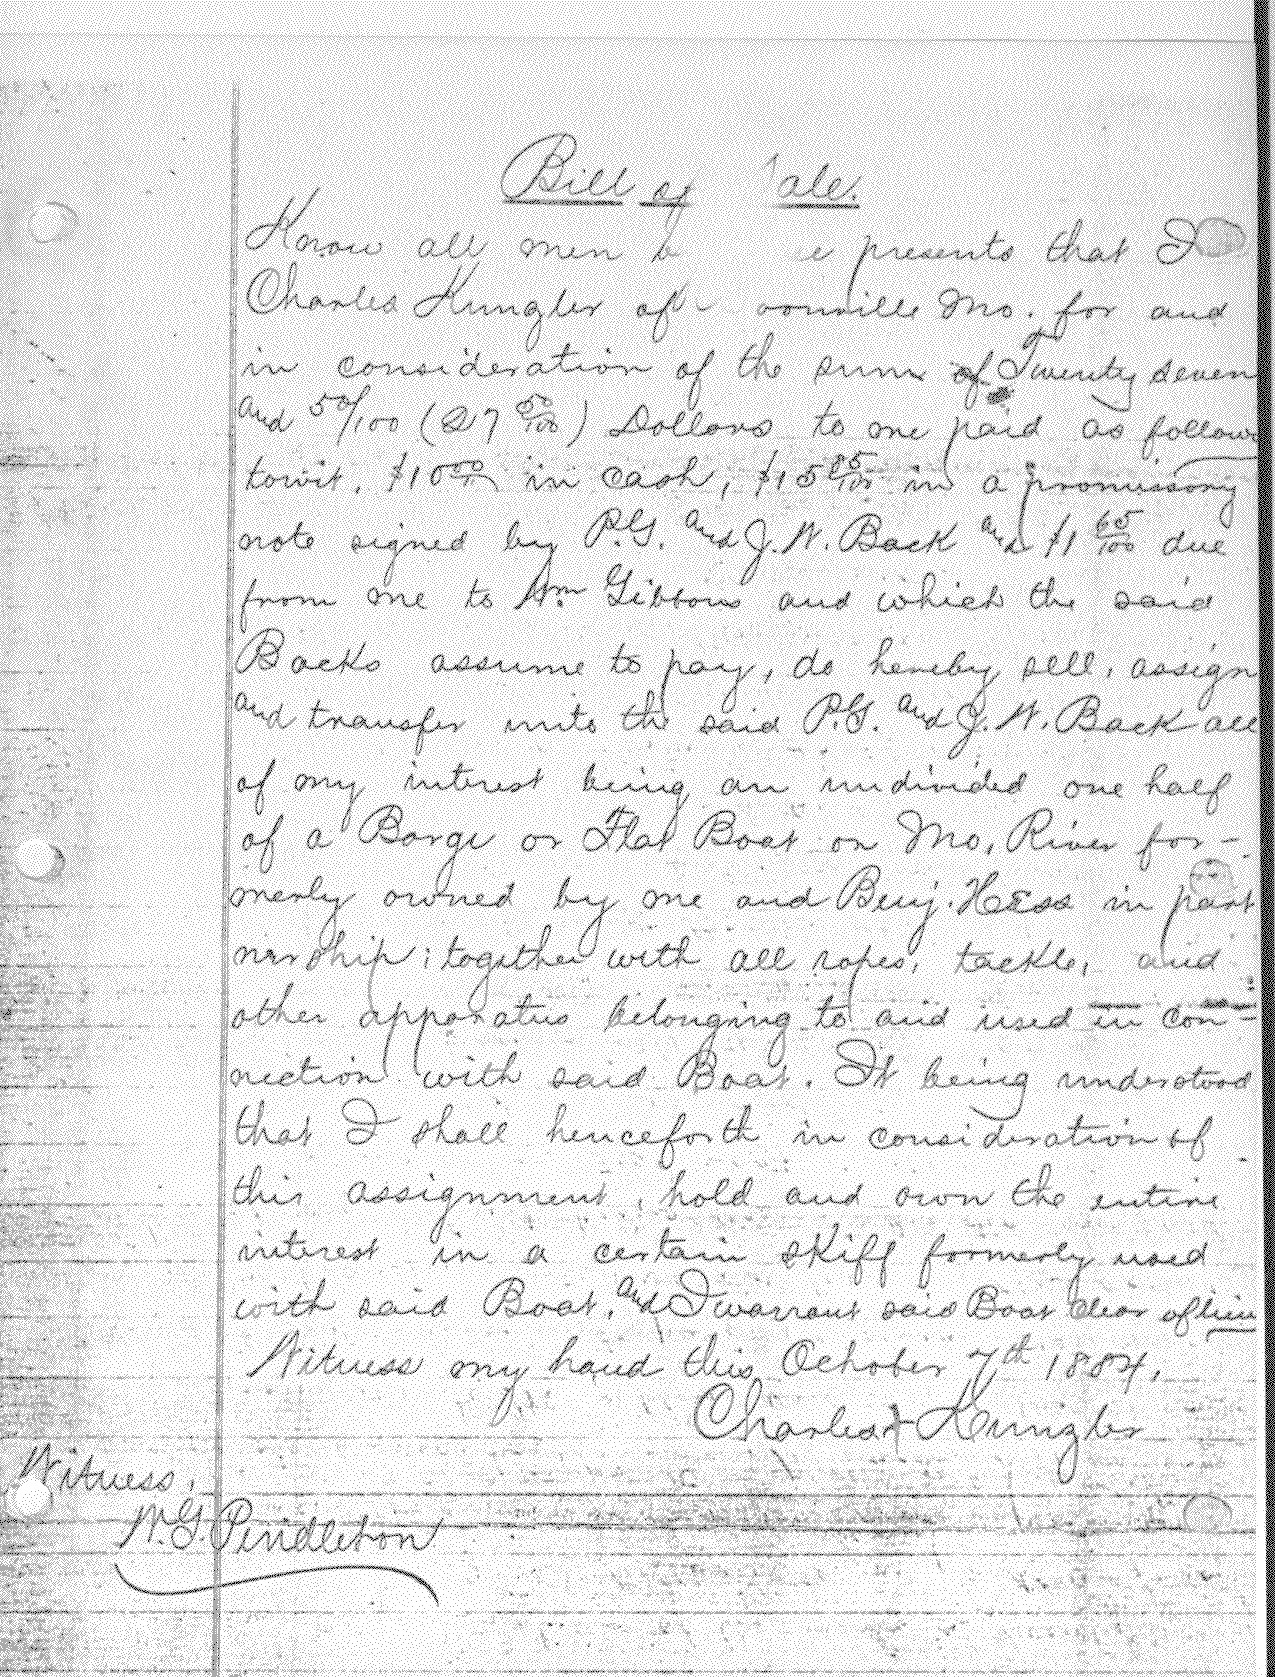 Bill of ale.
Know all men b e presents that I
Charles Kungler of oonville Mo. for and
in consideration of the sum of Twenty seven
and 50/100 (27 50/100) Dollars to me paid as follows
towit. $10 00 in cash, $15 85/100 in a promissory
note signed by P.G. and J.W. Back and $1 65/100 due
from me to Wm Gibbons and which the said
Backs assume to pay, do hereby sell, assign
and transfer unto the said P.G. and J.W. Back all
of my interest being an undivided one half
of a Barge or Flat Boat on Mo. River for-
merly owned by me and Benj. Hess in part
nership; together with all ropes, tackle, and
other apparatus belonging to and used in con-
nection with said Boat. It being understood
that I shall henceforth in consideration of
this assignment, hold and own the entire
interest in a certain skiff formerly used
with said Boat, and I warrant said Boat clear of lien
Witness my hand this October 7th 1884.
Charles Kungler
Witness,
W.G. Pendleton